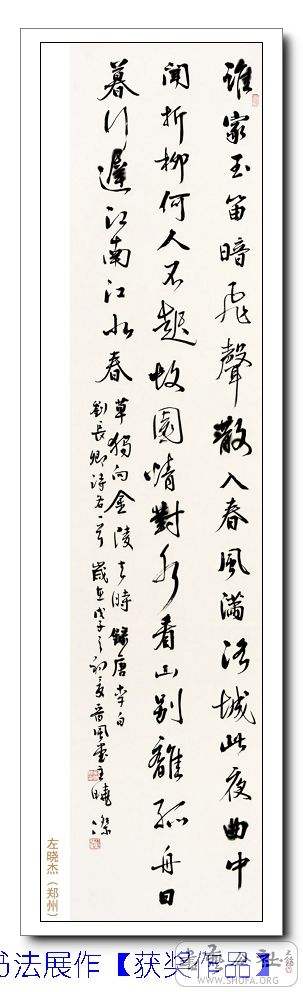 誰家玉笛暗飛聲散入春風滿洛城此夜曲中
聞折柳何人不起故園情對水看山別離孤舟日
暮行遲江南江北春
草獨向金陵去時錄唐李白
劉長卿詩各一首歲在戊子之初夏風堂主曉傑
左晓杰（郑州）
书法展作【获奖作品】
WWW.SHUFA.ORG